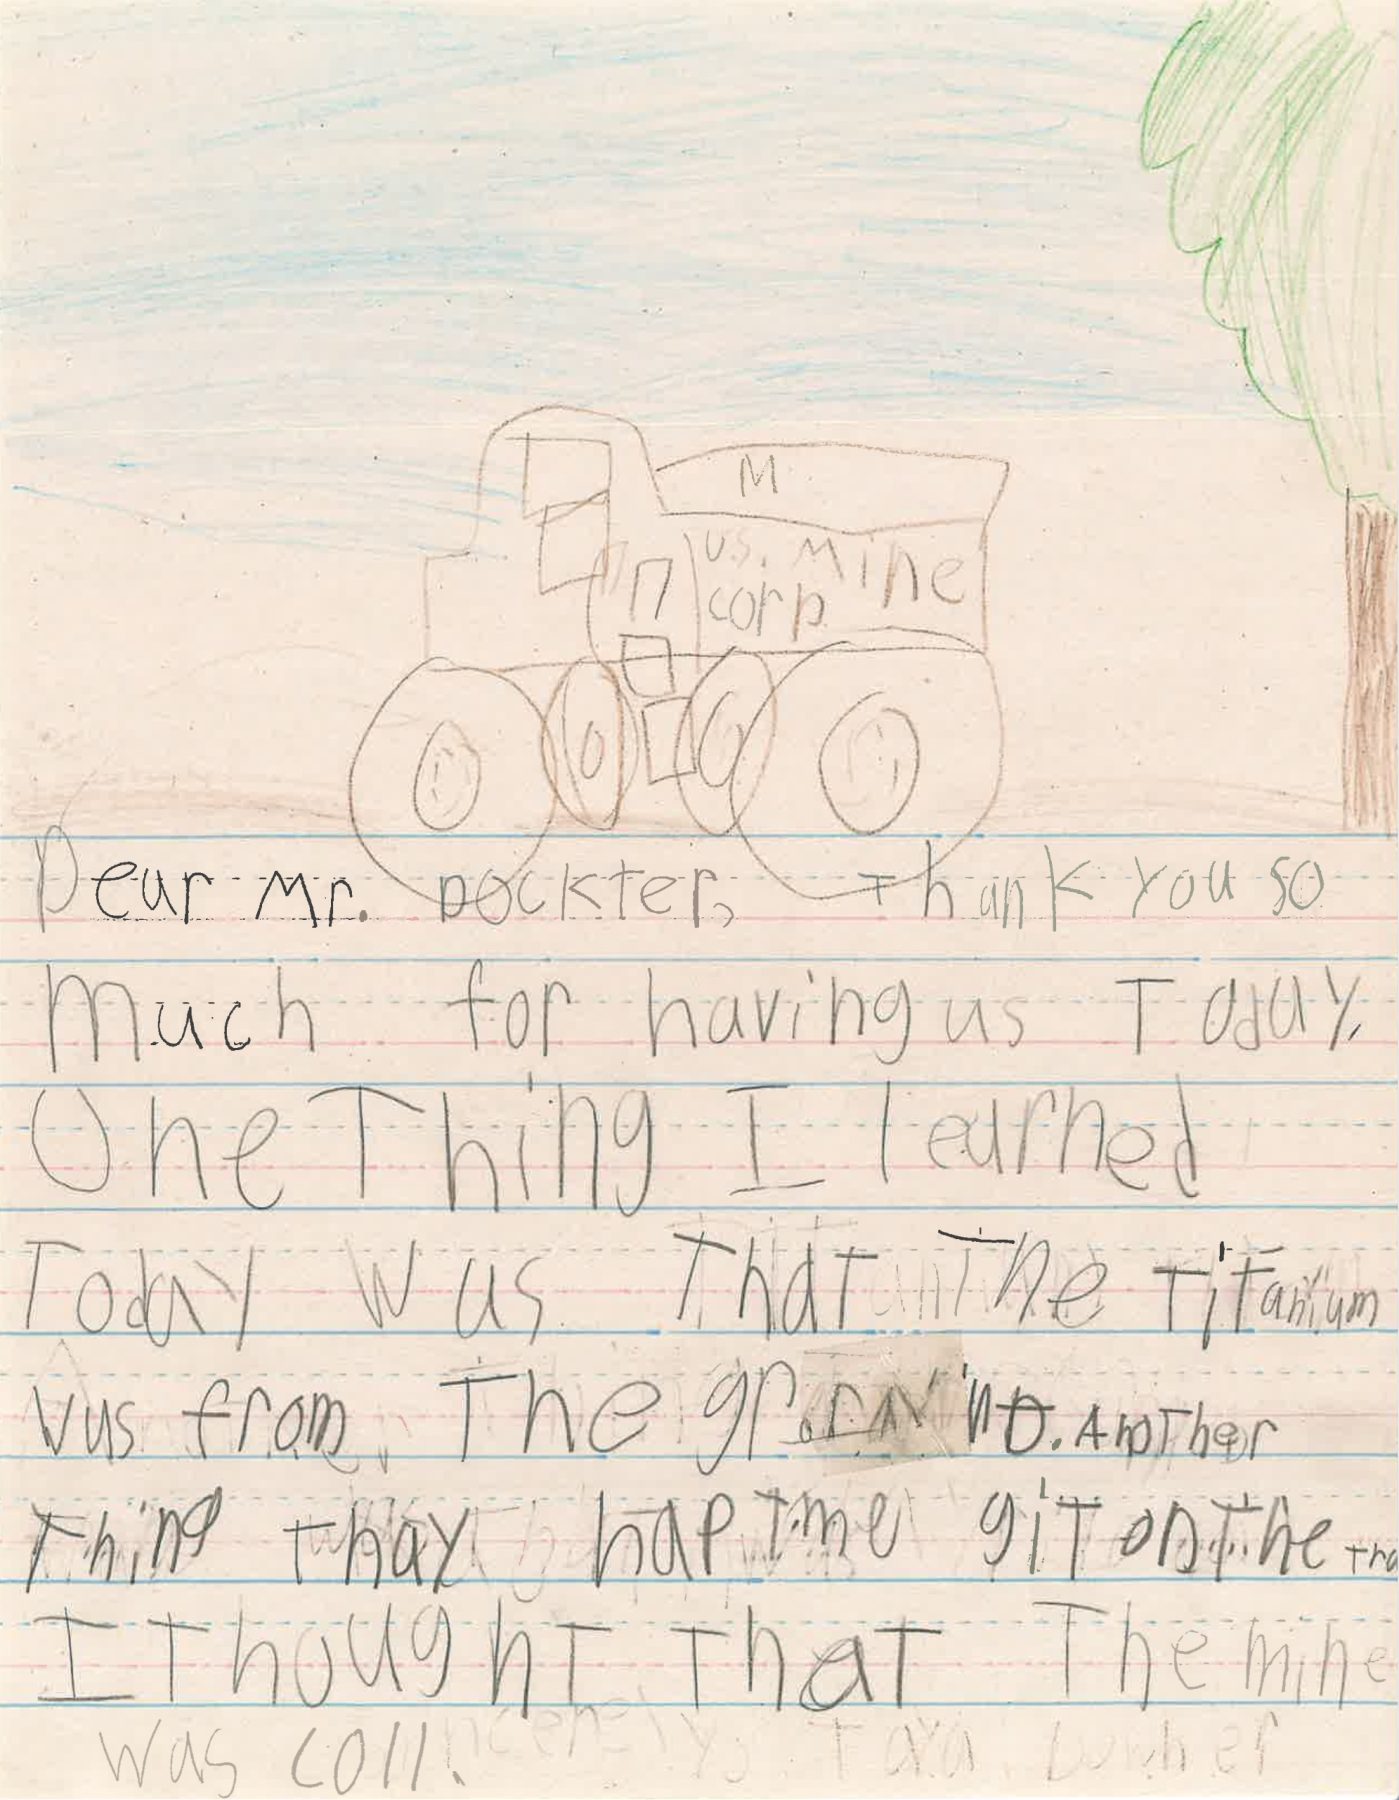 M
U.S. Mine
corp.
Dear Mr. Dockter, Thank you so
much for having us Today.
One Thing I learned
Today wus That The Titanium
wus from The Another
Thing Thay me giT on The
I ThoughT That The mine
was coll. Sincerely, Taya